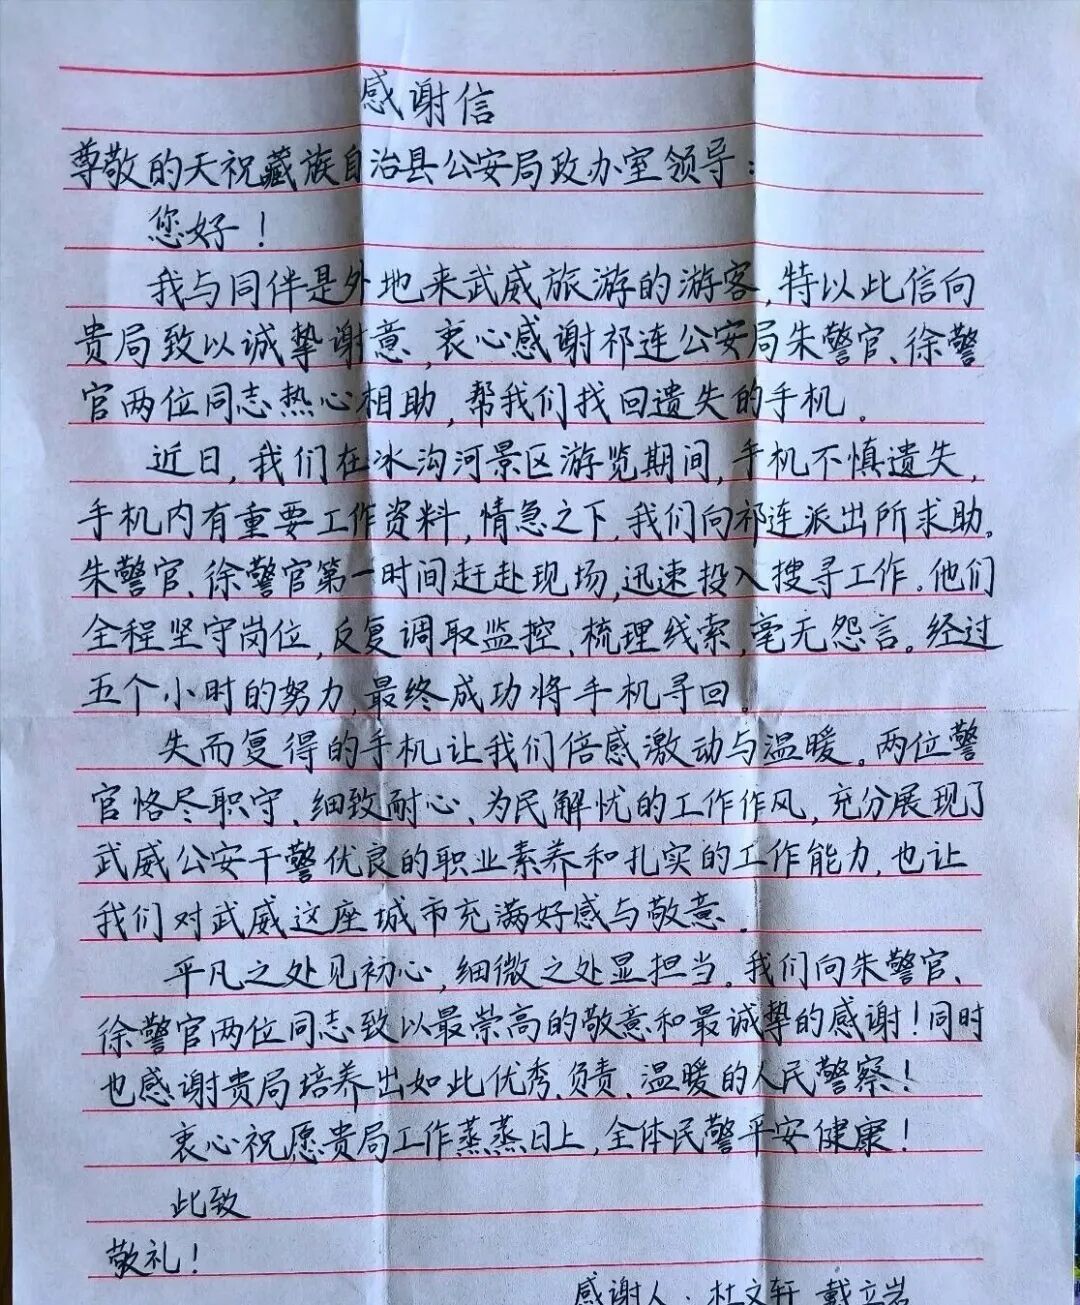 感谢信
尊敬的天祝藏族自治县公安局政办室领导：
您好！
我与同伴是外地来武威旅游的游客，特以此信向
贵局致以诚挚谢意，衷心感谢祁连公安局朱警官、徐警
官两位同志热心相助，帮我们找回遗失的手机。
近日，我们在冰沟河景区游览期间，手机不慎遗失，
手机内有重要工作资料，情急之下，我们向祁连派出所求助。
朱警官、徐警官第一时间赶赴现场，迅速投入搜寻工作。他们
全程坚守岗位，反复调取监控、梳理线索，毫无怨言。经过
五个小时的努力，最终成功将手机寻回。
失而复得的手机让我们倍感激动与温暖。两位警
官恪尽职守、细致耐心、为民解忧的工作作风，充分展现了
武威公安干警优良的职业素养和扎实的工作能力，也让
我们对武威这座城市充满好感与敬意。
平凡之处见初心，细微之处显担当。我们向朱警官、
徐警官两位同志致以最崇高的敬意和最诚挚的感谢！同时
也感谢贵局培养出如此优秀、负责、温暖的人民警察！
衷心祝愿贵局工作蒸蒸日上，全体民警平安健康！
此致
敬礼！
感谢人：杜文轩 戴立岩